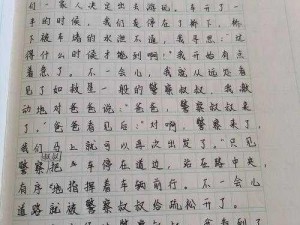 们一家人决定出去游玩。车开了一
半的时候，我们是停在了桥下，桥
下被车堵的水泄不通，我寻思："这
得什么时候才跑到啊！"我开始有点
着急了。不一会儿，我就从远处看
见了如救星一般的警察叔叔，我激
动地对爸爸说："爸爸，警察叔叔来
了。"爸爸看见后："对啊，警察来了，
我们马上就可以再次出发了。"只见
警察叔叔把车停在道边，站在路中央，
有序地指挥着车辆前行。不一会儿
道路就被警察叔叔给疏松开了。